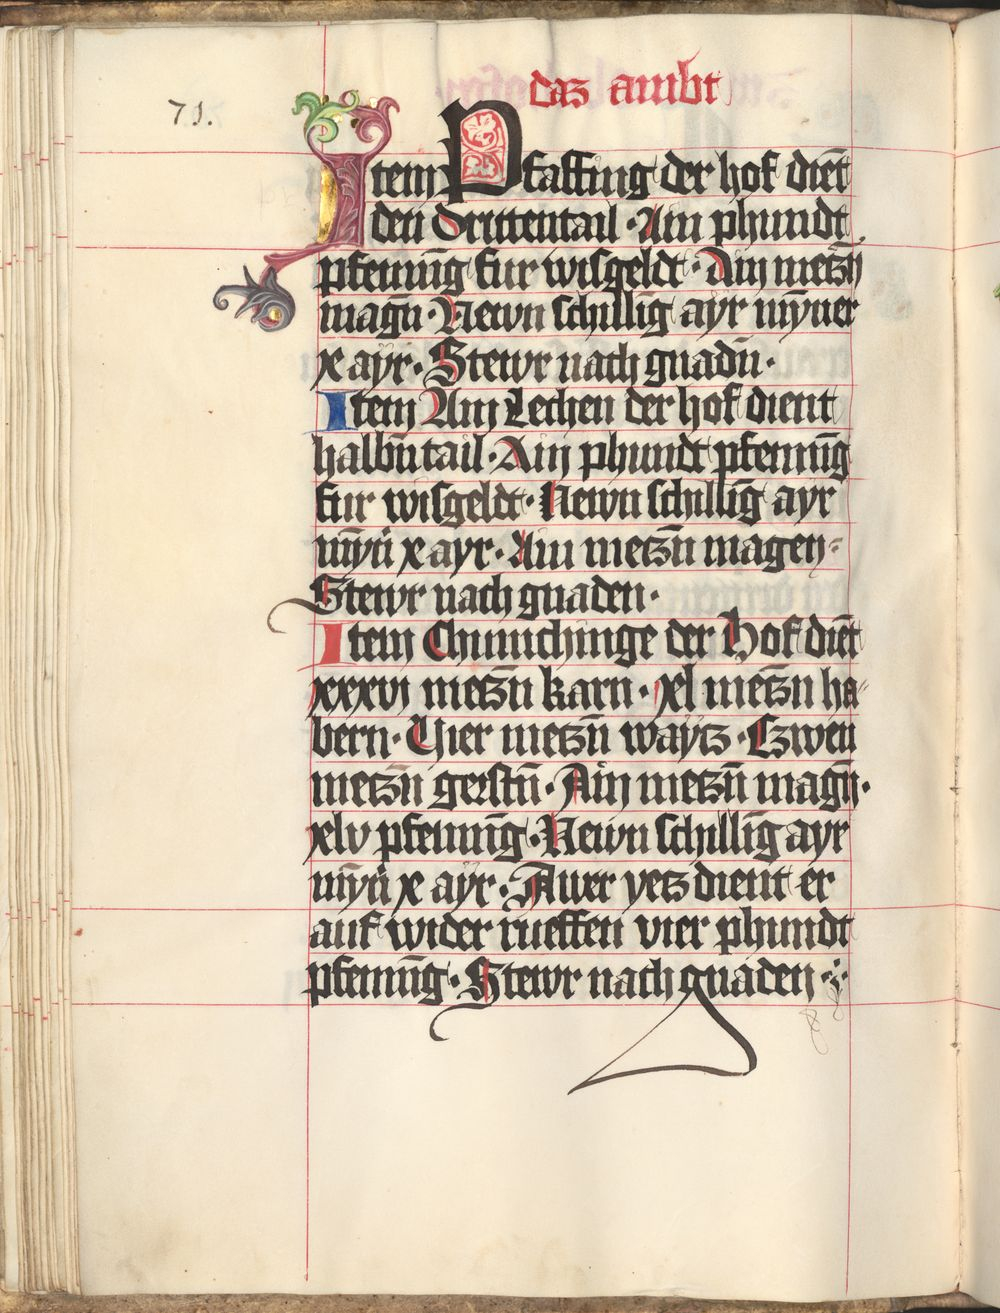 daz ambt
71.
Item Pfaffing der hof diēt
den drittentail · Ain phundt
pfenniņg fur wisgeldt · Ain metzn̄
magn̄ · Newn schilling ayr mȳner
x ayr · Stewr nach gnadn̄ ·
Item Am Lechen der hof dient
halbn̄ tail · Ain phundt pfenning
fur wisgeldt · Newn schilling ayr
mȳn̄ x ayr · Ain metzn̄ magen ·
Stewr nach gnaden ·
Item Chunichinge der Hof diēt
xxxvi metzn̄ karn · xl metzn̄ ha„
bern · Vier metzn̄ waytz · Czwen
metzn̄ gerstn̄ · Ain metzn̄ magn̄ ·
xlv pfenning · Newn schilling ayr
mȳn̄ x ayr · Awer yetz dient er
auf wider rueffen vier phundt
pfennīg · Stewr nach gnaden ·